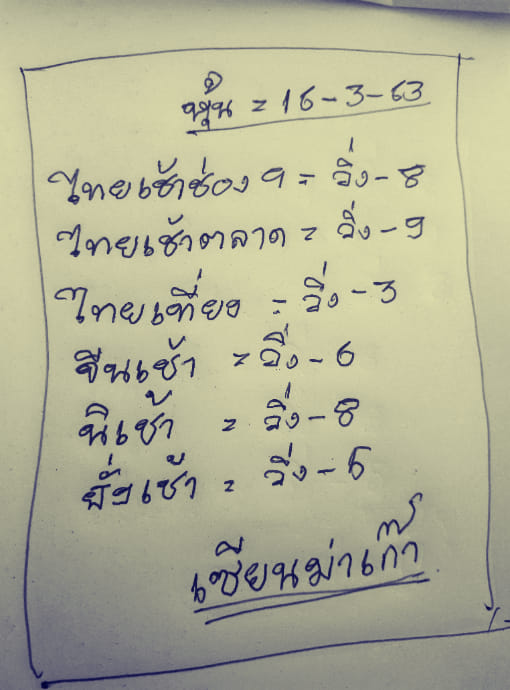 หุ้น = 16-3-63
ไทยเช้าช่อง 9 = วิ่ง-8
ไทยเช้าตลาด = วิ่ง-9
ไทยเที่ยง = วิ่ง-3
จีนเช้า = วิ่ง-6
นิเช้า = วิ่ง-8
ฮั่งเช้า = วิ่ง-5
เซียนม่าเก๊า